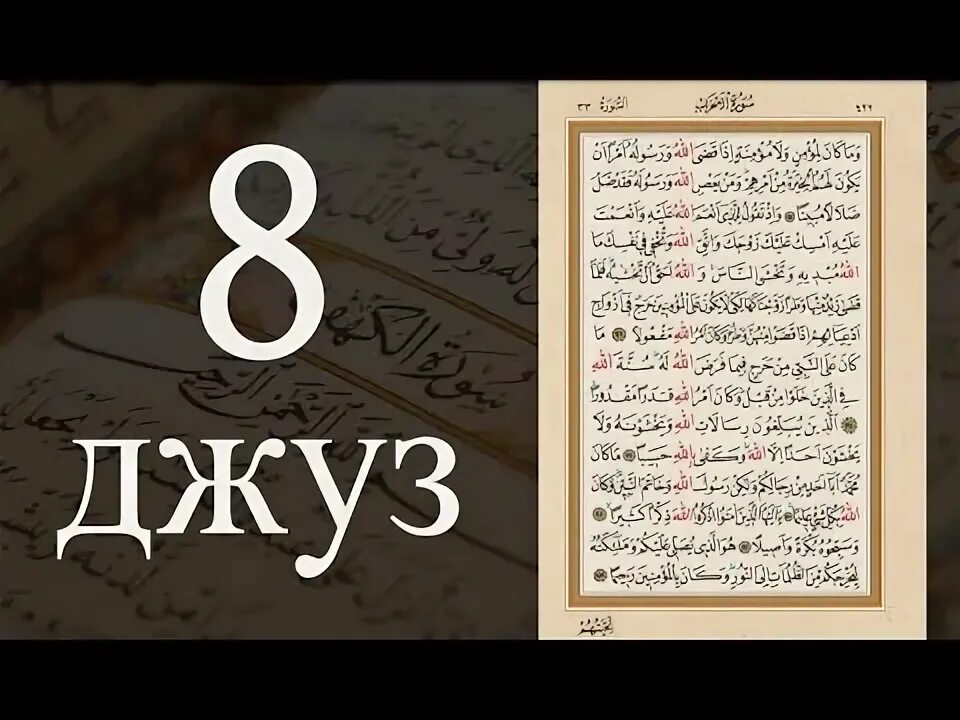 8
джуз
السورة ٣٣
سورة الاحزاب
وَمَا كَانَ لِمُؤْمِنٍ وَلَا مُؤْمِنَةٍ اِذَا قَضَى اللهُ وَرَسُولُهُ اَمْرًا اَنْ
يَكُونَ لَهُمُ الْخِيَرَةُ مِنْ اَمْرِهِمْ وَمَنْ يَعْصِ اللهَ وَرَسُولَهُ فَقَدْ ضَلَّ
ضَلَالًا مُبِينًا وَاِذْ تَقُولُ لِلَّذِى اَنْعَمَ اللهُ عَلَيْهِ وَاَنْعَمْتَ
عَلَيْهِ اَمْسِكْ عَلَيْكَ زَوْجَكَ وَاتَّقِ اللهَ وَتُخْفِى فِى نَفْسِكَ مَا
اللهُ مُبْدِيهِ وَتَخْشَى النَّاسَ وَاللهُ اَحَقُّ اَنْ تَخْشٰيهُ فَلَمَّا
قَضٰى زَيْدٌ مِنْهَا وَطَرًا زَوَّجْنَاكَهَا لِكَىْ لَا يَكُونَ عَلَى الْمُؤْمِنِينَ حَرَجٌ فِى اَزْوَاجِ
اَدْعِيَائِهِمْ اِذَا قَضَوْا مِنْهُنَّ وَطَرًا وَكَانَ اَمْرُ اللهِ مَفْعُولًا مَا
كَانَ عَلَى النَّبِىِّ مِنْ حَرَجٍ فِيمَا فَرَضَ اللهُ لَهُ سُنَّةَ اللهِ
فِى الَّذِينَ خَلَوْا مِنْ قَبْلُ وَكَانَ اَمْرُ اللهِ قَدَرًا مَقْدُورًا
اَلَّذِينَ يُبَلِّغُونَ رِسَالَاتِ اللهِ وَيَخْشَوْنَهُ وَلَا
يَخْشَوْنَ اَحَدًا اِلَّا اللهَ وَكَفٰى بِاللهِ حَسِيبًا مَا كَانَ
مُحَمَّدٌ اَبَا اَحَدٍ مِنْ رِجَالِكُمْ وَلٰكِنْ رَسُولَ اللهِ وَخَاتَمَ النَّبِيِّنَ وَكَانَ
اللهُ بِكُلِّ شَىْءٍ عَلِيمًا يَا اَيُّهَا الَّذِينَ اٰمَنُوا اذْكُرُوا اللهَ ذِكْرًا كَثِيرًا
وَسَبِّحُوهُ بُكْرَةً وَاَصِيلًا هُوَ الَّذِى يُصَلِّى عَلَيْكُمْ وَمَلٰئِكَتُهُ
لِيُخْرِجَكُمْ مِنَ الظُّلُمَاتِ اِلَى النُّورِ وَكَانَ بِالْمُؤْمِنِينَ رَحِيمًا
تَحِيَّتُهُمْ
سورة الكهف